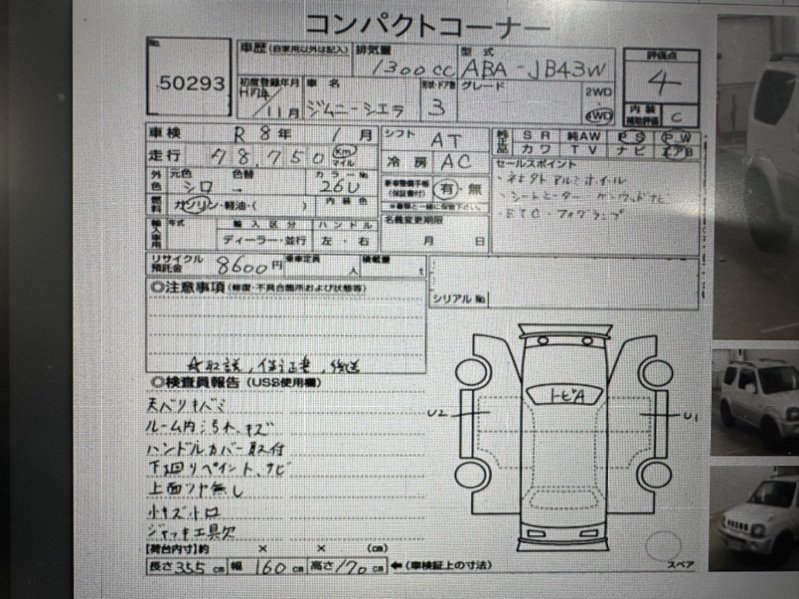 コンパクトコーナー
No. 50293
車歴 (自家用以外は記入)
排気量 1300cc
型式 ABA-JB43W
評価点 4
初度登録年月 11月
車名 ジムニーシエラ
形状・ドア数 3
グレード
2WD
4WD
内装 補助評価 C
車検 R 8年 1月
シフト AT
純正品 SR 純AW PS PW
カワ TV ナビ エアB
走行 78,750 km マイル
冷房 AC
セールスポイント
外色 元色 シロ 色替 カラーNo. 26U
新車整備手帳 (保証書付) 有・無
・社外アルミホイール
・シートヒーター ナビ
・ETC・フォグランプ
燃料 ガソリン・軽油・( ) 内装色
名義変更期限
月 日
輸入車用 年式 輸入区分 ハンドル
ディーラー・並行 左・右
リサイクル預託金 8600円 乗車定員 人 積載量 t
シリアルNo.
◎注意事項 (修復・不具合箇所および状態等)
取説、保証書、後送
◎検査員報告 (USS使用欄)
天ベリキバミ
ルーム内汚れ、キズ
ハンドルカバー取付
下回りペイント、サビ
上面ツヤ無し
小キズ小凹
ジャッキ工具欠
トビA
U2
U1
スペア
【荷台内寸】約 × × (cm)
長さ 355 cm 幅 160 cm 高さ 170 cm ←(車検証上の寸法)